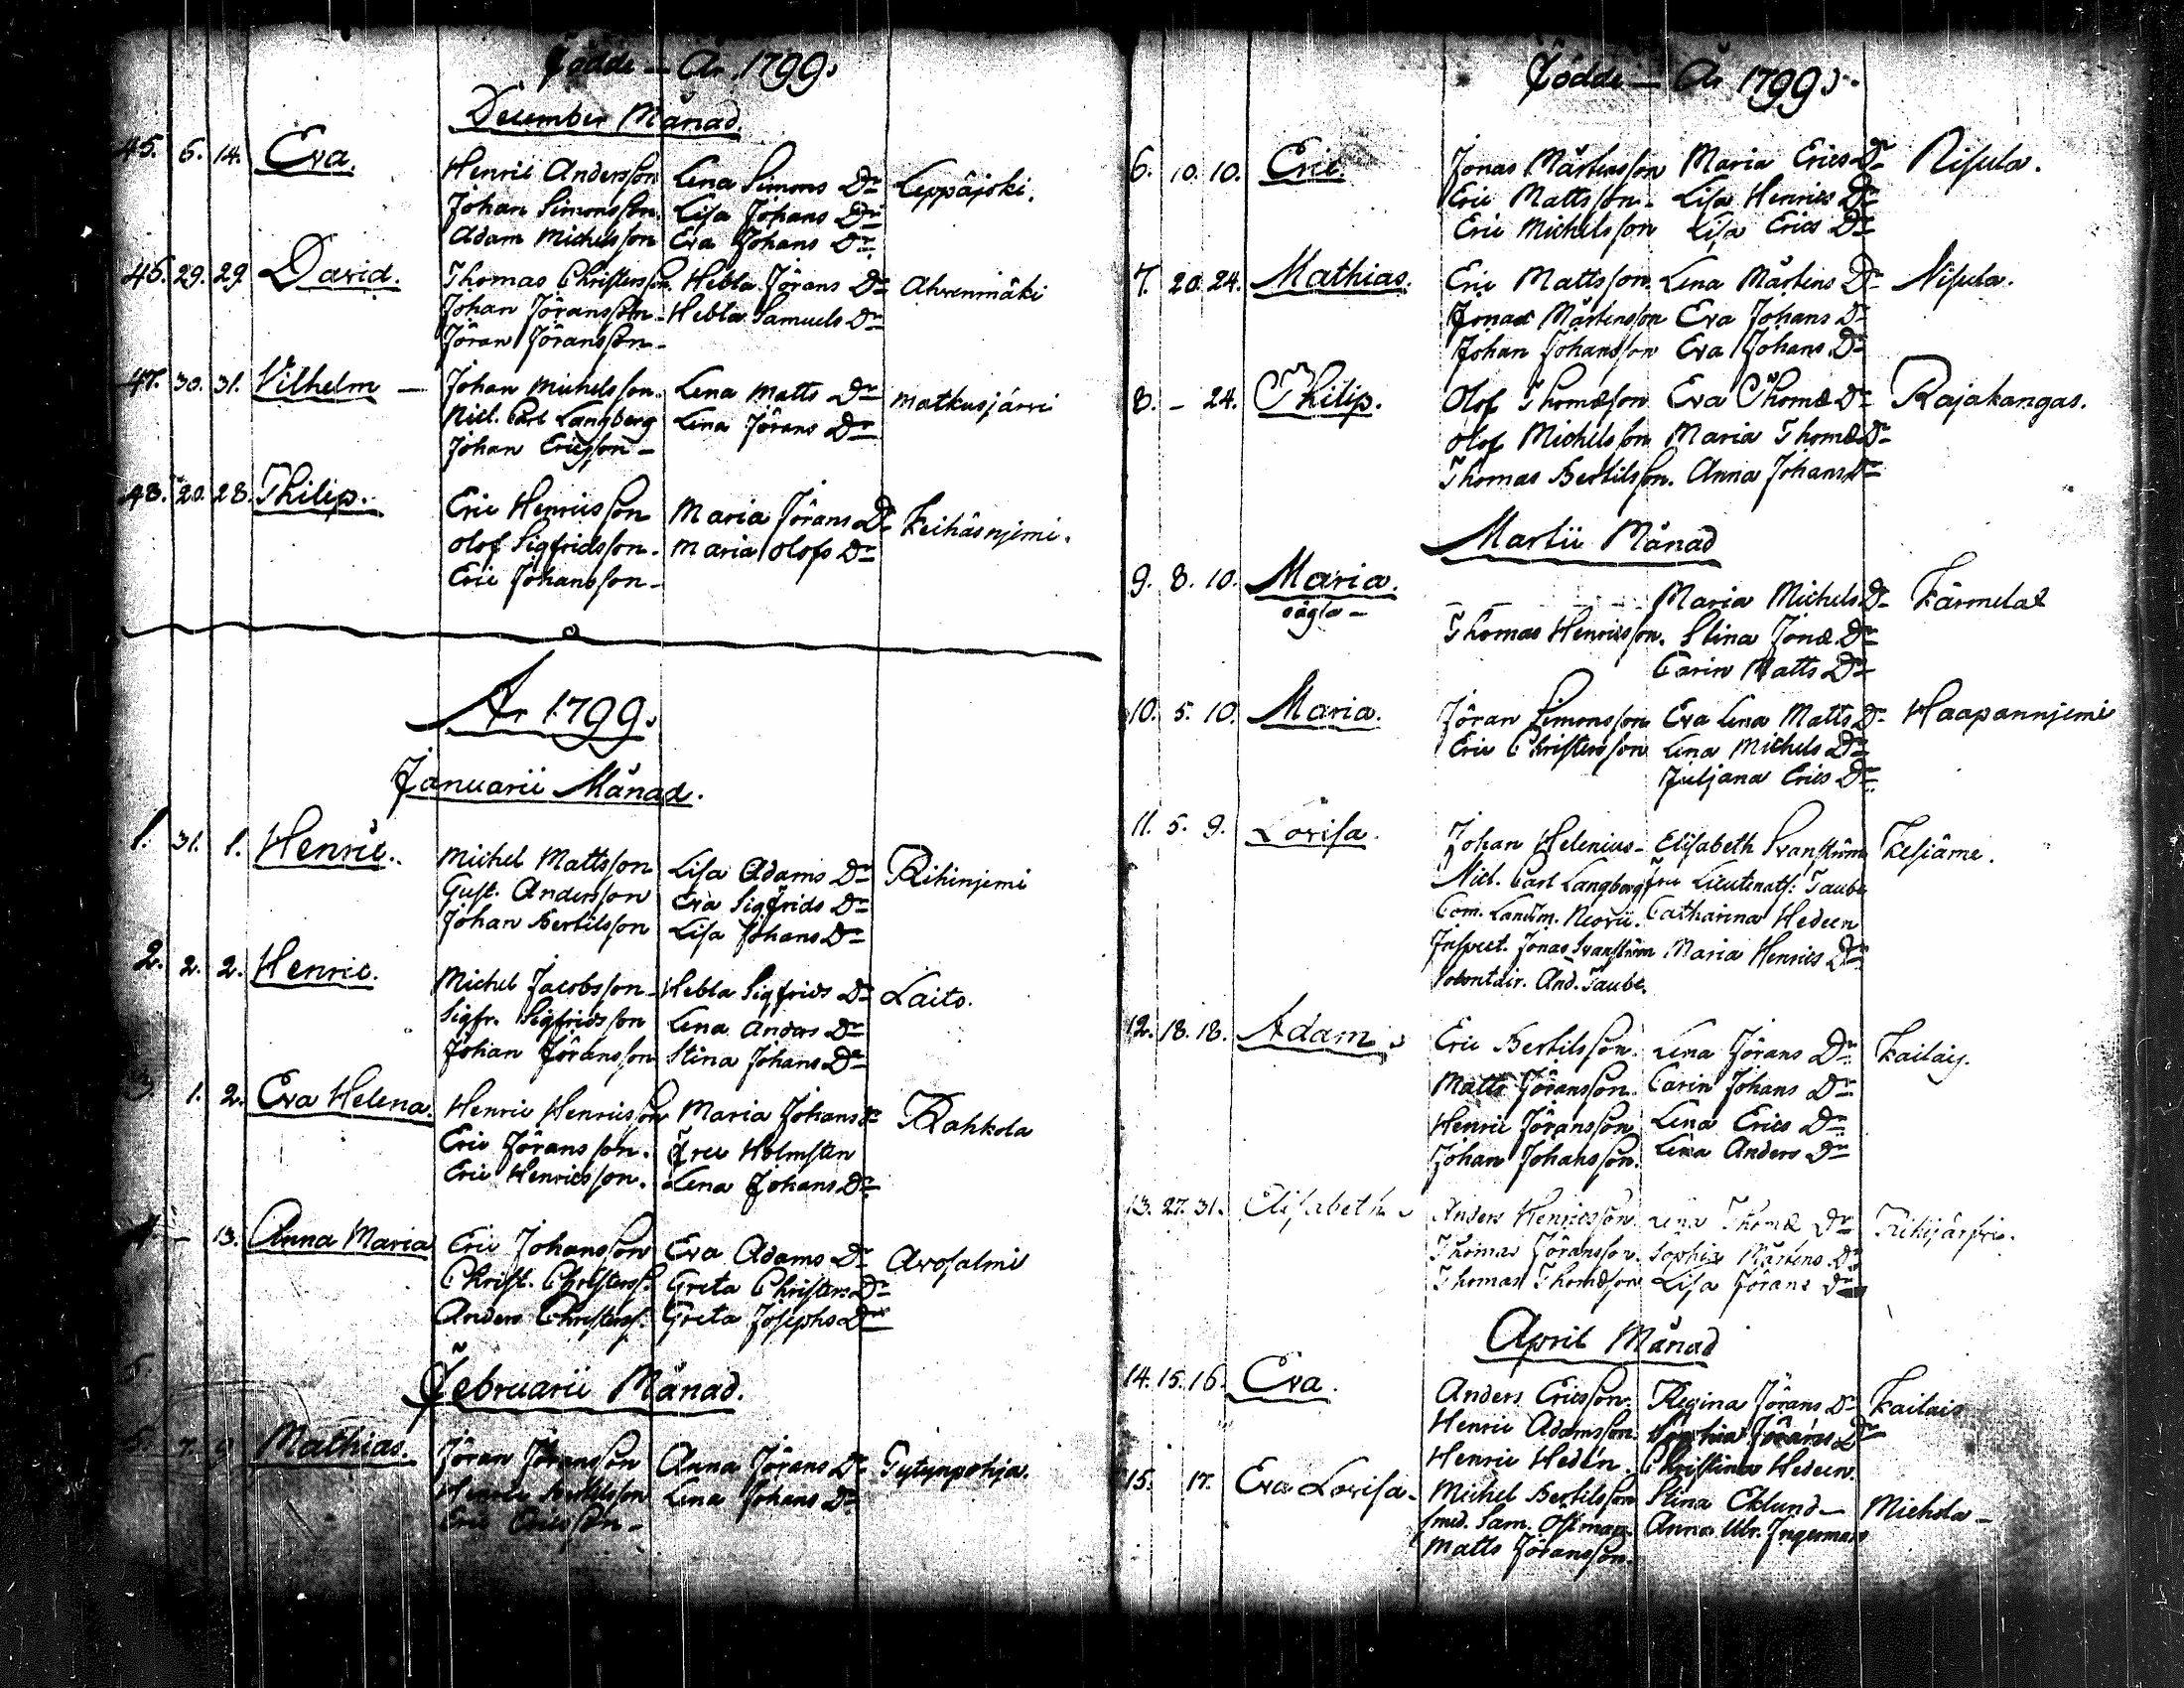 Födde — År 1799.
December Månad.
45. 6. 14. Eva. Henric Andersson Lena Simons Dr Leppäjoki.
Johan Simonsson. Lisa Johans Dr
Adam Michelsson Eva Johans Dr
46. 29. 29. David. Thomas Christersson. Hebla Jörans Dr Ahvenmäki
Johan Jöransson - Hebla Samuels Dr
Jöran Jöransson -
47. 30. 31. Vilhelm — Johan Michelsson. Lena Matts Dr Matkusjärvi
Nicl. Carl Langberg Lena Jörans Dr
Johan Ericsson -
48. 20. 28. Philip. Eric Henricsson Maria Jörans Dr Keihäsnjemi.
Olof Sigfridsson. Maria Olofs Dr
Eric Johansson -
År 1799.
Januarii Månad.
1. 31. 1. Henric. Michel Mattsson Lisa Adams Dr Rihinjemi
Gust. Andersson Eva Sigfrids Dr
Johan Bertilsson Lisa Johans Dr
2. 2. 2. Henric. Michel Jacobsson - Hebla Sigfrids Dr Laito.
Sigfr. Sigfridsson Lena Anders Dr
Johan Jöransson Stina Johans Dr
3. 1. 2. Eva Helena. Henric Henricsson Maria Johans Dr Rahkola
Eric Jöransson. Fru Holmsten
Eric Henricsson. Lena Johans Dr
4. — 13. Anna Maria Eric Johansson Eva Adams Dr Arvosalmi
Christ. Christerss. Greta Christers Dr
Anders Christerss. Greta Josephs Dr
5.
Februarii Månad.
5. 7. 9 Mathias. Jöran Jöransson Anna Jörans Dr Pytynpohja.
Henric Bertilsson Lena Johans Dr
Eric Ericsson -
Födde — År 1799.
6. 10. 10. Eric. Jonas Mårtensson Maria Erics Dr Nisula.
Eric Mattsson - Lisa Henrics Dr
Eric Michelsson Lisa Erics Dr
7. 20. 24. Mathias. Eric Mattsson Lena Mårtens Dr Nisula.
Jonas Mårtensson Eva Johans Dr
Johan Johansson Eva Johans Dr
8. — 24. Philip. Olof Thomæson Eva Thomæ Dr Rajakangas.
Olof Michelsson Maria Thomæ Dr
Thomas Bertilsson. Anna Johans Dr
Martii Månad
9. 8. 10. Maria. Maria Michels Dr Kärmelat
oägta - Thomas Henricsson. Stina Jonæ Dr
Carin Matts Dr
10. 5. 10. Maria. Jöran Simonsson Eva Lena Matts Dr Haapannjemi
Eric Christersson Lena Michels Dr
Juljana Erics Dr
11. 5. 9. Lovisa. Johan Helenius - Elisabeth Svanström Kesiäme.
Nicl. Carl Langberg Fru Lieutenats: Taube
Com. Landtm. Neovii. Catharina Hedeen
Inspect. Jonas Svanström Maria Henrics Dr
Volontair. And. Taube.
12. 18. 18. Adam. Eric Bertilsson. Lena Jörans Dr Kailais.
Matts Jöransson. Carin Johans Dr
Henric Jöransson Lena Erics Dr
Johan Johansson. Lena Anders Dr
13. 27. 31. Elisabeth. Anders Henricsson. Lena Thomæ Dr Rihijärfvi.
Thomas Jöransson. Sophia Mårtens Dr
Thomas Thomæson Lisa Jörans Dr
April Månad
14. 15. 16. Eva. Anders Ericsson. Regina Jörans Dr Kailais
Henric Adamsson. Sophia Jörans Dr
Henric Hedén. Christina Hedeen.
15. 17. Eva Lovisa - Michel Bertilsson Stina Eklund — Miekola -
Smed. Sam. Östman. Anna Ulr. Ingerman
Matts Jöransson.